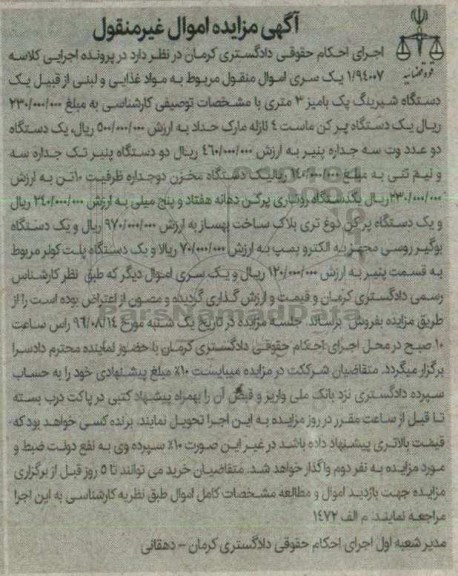 آگهی مزایده اموال غیرمنقول
قوه قضائیه
اجرای احکام حقوقی دادگستری کرمان در نظر دارد در پرونده اجرایی کلاسه
۱/۹۴۰۰۷ یک سری اموال منقول مربوط به مواد غذایی و لبنی از قبیل یک
دستگاه شیرینگ پک بامیز ۳ متری با مشخصات توصیفی کارشناسی به مبلغ ۲۳۰/۰۰۰/۰۰۰
ریال یک دستگاه پر کن ماست ۴ نازله مارک حداد به ارزش ۵۰۰/۰۰۰/۰۰۰ ریال، یک دستگاه
دو عدد وت سه جداره پنیر به ارزش ۴۶۰/۰۰۰/۰۰۰ ریال دو دستگاه پنیر تک جداره سه
و نیم تنی به مبلغ ۱۴۰/۰۰۰/۰۰۰ ریال یک دستگاه مخزن دوجداره ظرفیت ۱۰تن به ارزش
۲۳۰/۰۰۰/۰۰۰ ریال یکدستگاه روتاری پرکن دهانه هفتاد و پنج میلی به ارزش ۲۴۰/۰۰۰/۰۰۰ ریال
و یک دستگاه پر کن دوغ تری بلاک ساخت بهساز به ارزش ۹۷۰/۰۰۰/۰۰۰ ریال و یک دستگاه
بوگیر روسی مجهز به الکترو پمپ به ارزش ۷۰/۰۰۰/۰۰۰ ریالا و یک دستگاه پلت کولر مربوط
به قسمت پنیر به ارزش ۱۲۰/۰۰۰/۰۰۰ ریال و یک سری اموال دیگر که طبق نظر کارشناس
رسمی دادگستری کرمان و قیمت و ارزش گذاری گردیده و مصون از اعتراض بوده است را از
طریق مزایده بفروش برساند. جلسه مزایده در تاریخ یک شنبه مورخ ۹۶/۰۸/۱۴ راس ساعت
۱۰ صبح در محل اجرای احکام حقوقی دادگستری کرمان با حضور نماینده محترم دادسرا
برگزار میگردد. متقاضیان شرکت در مزایده میبایست ۱۰٪ مبلغ پیشنهادی خود را به حساب
سپرده دادگستری نزد بانک ملی واریز و قبض آن را بهمراه پیشنهاد کتبی در پاکت درب بسته
تا قبل از ساعت مقرر در روز مزایده به این اجرا تحویل نمایند. برنده کسی خواهد بود که
قیمت بالاتری پیشنهاد داده باشد در غیر این صورت ۱۰٪ سپرده وی به نفع دولت ضبط و
مورد مزایده به نفر دوم واگذار خواهد شد. متقاضیان خرید می توانند تا ۵ روز قبل از برگزاری
مزایده جهت بازدید اموال و مطالعه مشخصات کامل اموال طبق نظریه کارشناسی به این اجرا
مراجعه نمایند. م الف ۱۴۷۲
مدیر شعبه اول اجرای احکام حقوقی دادگستری کرمان – دهقانی
ParsNamadData